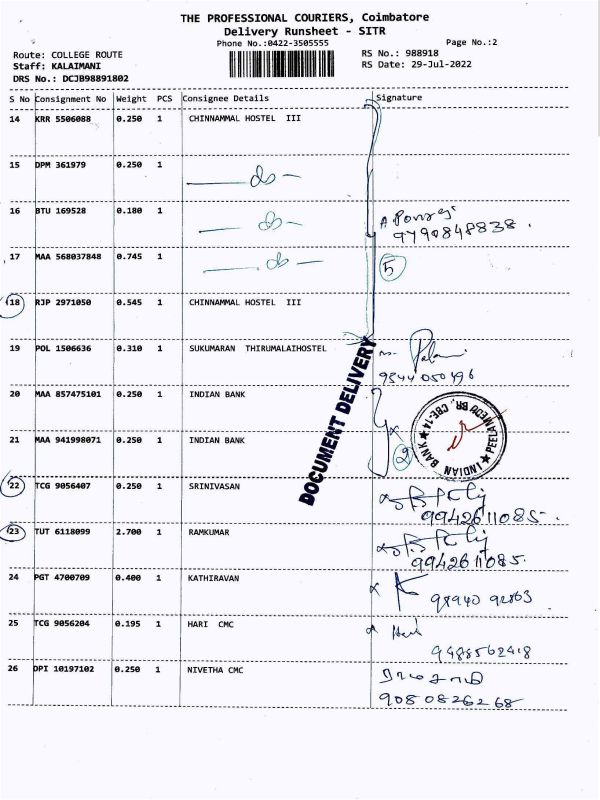 THE PROFESSIONAL COURIERS, Coimbatore
Delivery Runsheet - SITR
Phone No.:0422-3505555 Page No.:2
Route: COLLEGE ROUTE RS No.: 988918
Staff: KALAIMANI RS Date: 29-Jul-2022
DRS No.: DCJB98891802
S No Consignment No Weight PCS Consignee Details Signature
14 KRR 5506088 0.250 1 CHINNAMMAL HOSTEL III
15 DPM 361979 0.250 1 — do —
16 BTU 169528 0.180 1 — do —
9790848838.
17 MAA 568037848 0.745 1 — do — 5
18 RJP 2971050 0.545 1 CHINNAMMAL HOSTEL III
19 POL 1506636 0.310 1 SUKUMARAN THIRUMALAIHOSTEL
9344 050496
DOCUMENT DELIVERY
20 MAA 857475101 0.250 1 INDIAN BANK
21 MAA 941998071 0.250 1 INDIAN BANK 2
INDIAN BANK ★ PEELAMEDU BR, CBE-14 ★
22 TCG 9056407 0.250 1 SRINIVASAN
9942611085.
23 TUT 6118099 2.700 1 RAMKUMAR
9942611085.
24 PGT 4700709 0.400 1 KATHIRAVAN
25 TCG 9056204 0.195 1 HARI CMC Hari
9488562418
26 DPI 10197102 0.250 1 NIVETHA CMC
9080826268